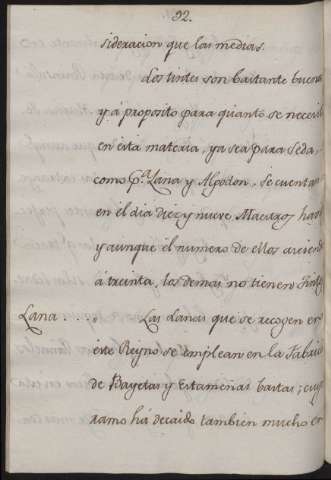 92.
sideracion que las medias.
Los tintes son bastante buenos
y á proposito para quanto se necesi
en esta materia, ya sea para Seda,
como p.ª Lana y Algodon. Se cuentan
en el dia diez y nueve Maestros
y aunque el numero de ellos asciende
á treinta, los demas no tienen
Lana..... Las Lanas que se recogen en
este Reyno se emplean en la Fabric
de Bayetas y Estameñas bastas; cuyo
ramo há decaido tambien mucho en